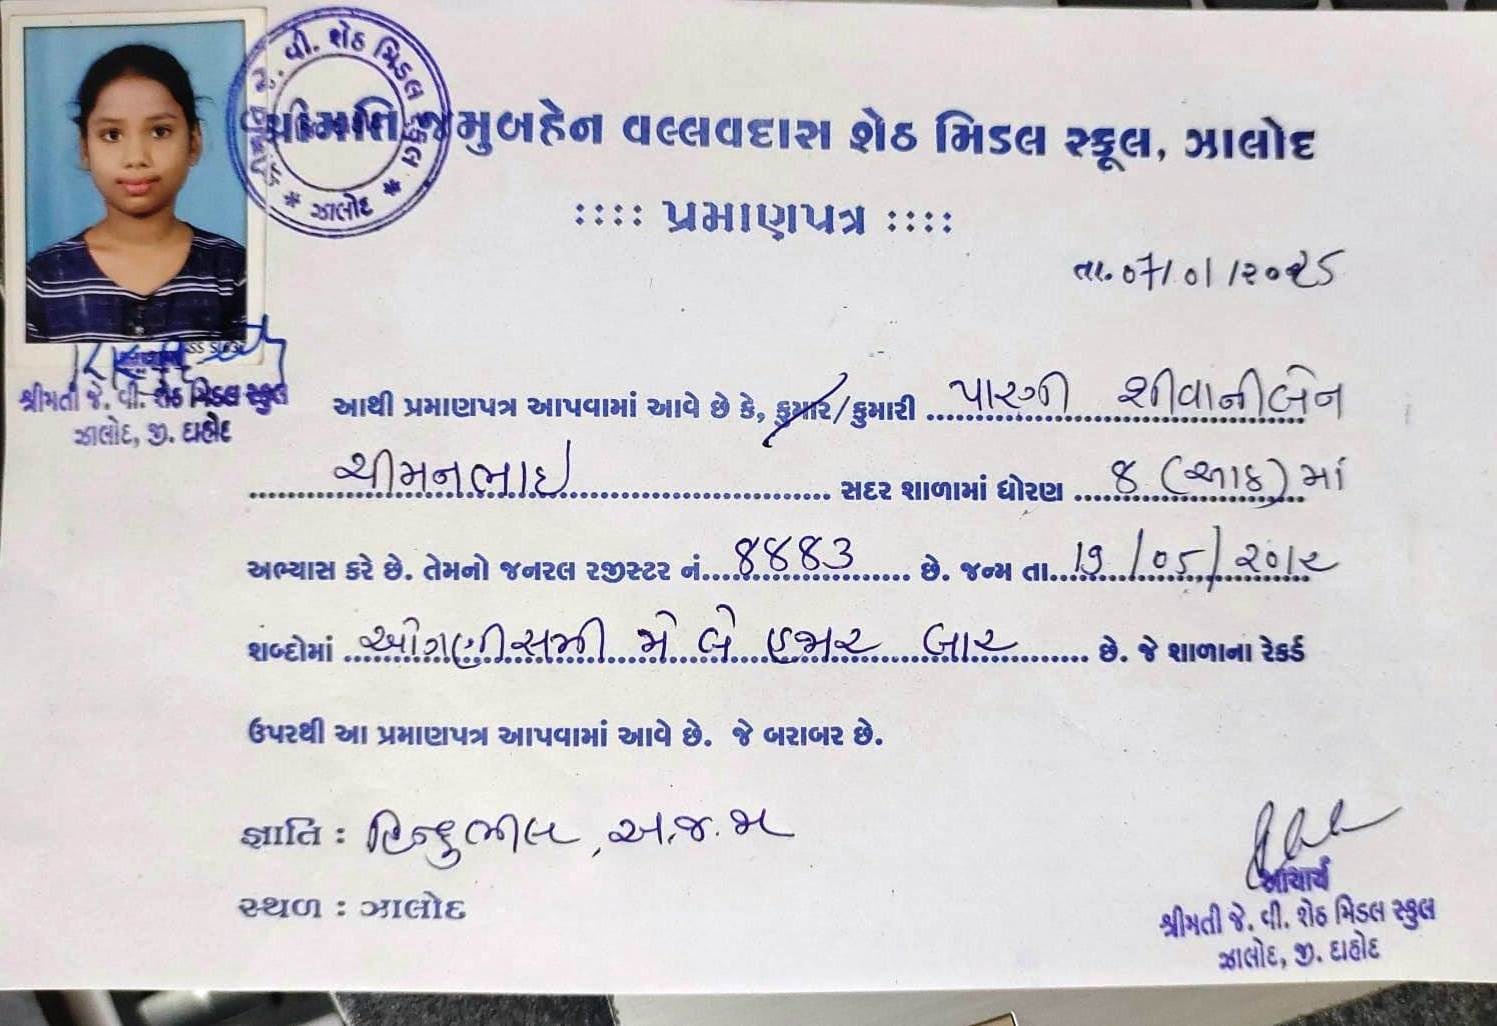 શ્રીમતિ જમુબહેન વલ્લવદાસ શેઠ મિડલ સ્કૂલ, ઝાલોદ
:::: પ્રમાણપત્ર ::::
તા. ૦7/01/૨૦૨5
જે. વી. શેઠ મિડલ સ્કુલ * ઝાલોદ *
શ્રીમતી જે. વી. શેઠ મિડલ સ્કુલ
ઝાલોદ, જી. દાહોદ
આથી પ્રમાણપત્ર આપવામાં આવે છે કે, કુમાર/કુમારી પારગી શીવાનીબેન
ચીમનભાઇ સદર શાળામાં ધોરણ ૪ (આઠ) માં
અભ્યાસ કરે છે. તેમનો જનરલ રજીસ્ટર નં. 8883 છે. જન્મ તા. 19/05/૨૦1૨
શબ્દોમાં ઓગણીસમી મે બે હજાર બાર છે. જે શાળાના રેકર્ડ
ઉપરથી આ પ્રમાણપત્ર આપવામાં આવે છે. જે બરાબર છે.
જ્ઞાતિ : હિન્દુ ભીલ, અ.જ.જા
સ્થળ : ઝાલોદ
આચાર્ય
શ્રીમતી જે. વી. શેઠ મિડલ સ્કુલ
ઝાલોદ, જી. દાહોદ